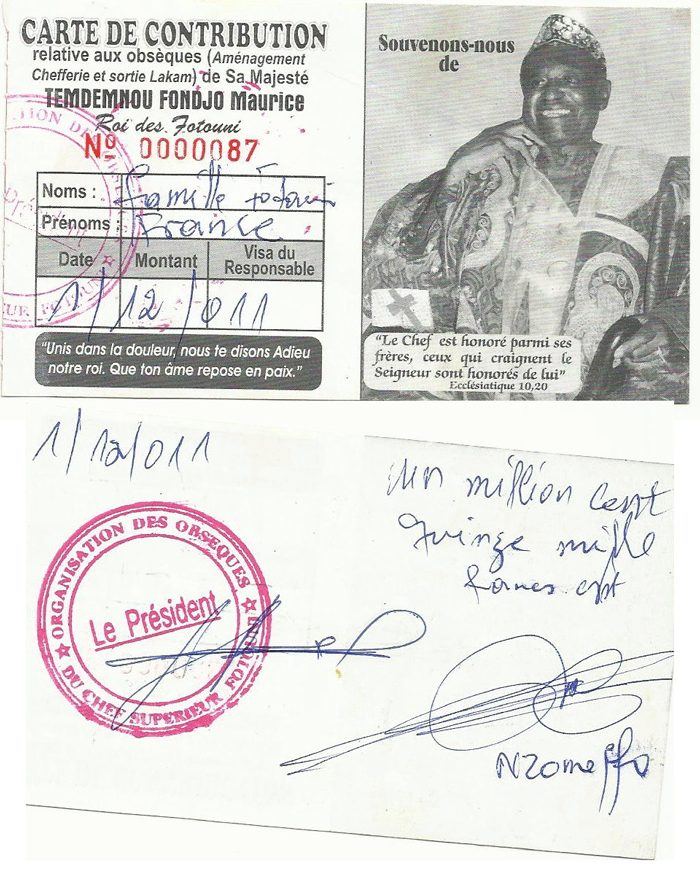 CARTE DE CONTRIBUTION
relative aux obsèques (Aménagement
Chefferie et sortie Lakam) de Sa Majesté
TEMDEMNOU FONDJO Maurice
Roi des Fotouni
Nº 0000087
Noms : famille Fotouni
Prénoms : France
Date Montant Visa du
Responsable
1/12/011
"Unis dans la douleur, nous te disons Adieu
notre roi. Que ton âme repose en paix."
Souvenons-nous
de
"Le Chef est honoré parmi ses
frères, ceux qui craignent le
Seigneur sont honorés de lui"
Ecclésiatique 10,20
1/12/011
Un million cent
quinze mille
francs
ORGANISATION DES OBSEQUES
Le Président
DU CHEF SUPERIEUR FOTOUNI